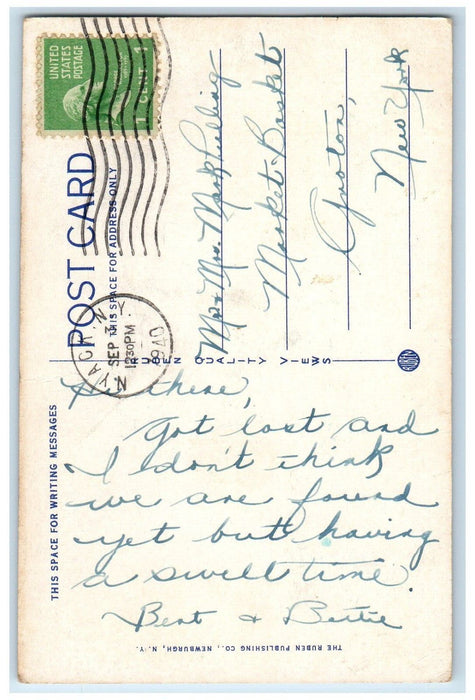 UNITED
STATES
POSTAGE
1 CENT 1
POST CARD
THIS SPACE FOR ADDRESS ONLY
NYACK N. Y.
SEP 3
12 30 PM
1940
Mr & Mrs. Mark
Market Basket
Groton,
New York
RUBEN QUALITY VIEWS
THIS SPACE FOR WRITING MESSAGES
Hi there,
Got lost and
I don't think
we are found
yet but having
a swell time.
Bert & Bertie
THE RUBEN PUBLISHING CO., NEWBURGH, N. Y.